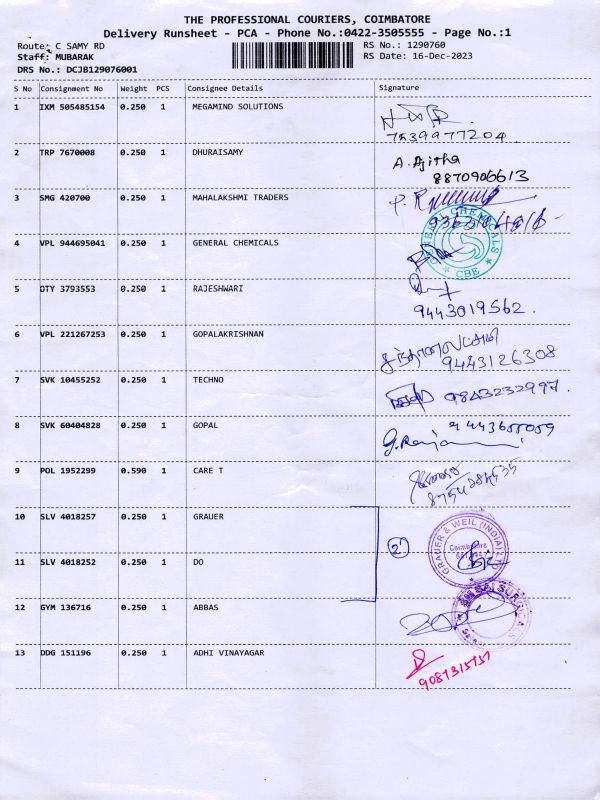 THE PROFESSIONAL COURIERS, COIMBATORE
Delivery Runsheet - PCA - Phone No.:0422-3505555 - Page No.:1
Route: C SAMY RD
RS No.: 1290760
Staff: MUBARAK
RS Date: 16-Dec-2023
DRS No.: DCJB129076001
S No Consignment No Weight PCS Consignee Details Signature
1 IXM 505485154 0.250 1 MEGAMIND SOLUTIONS
7539977204
2 TRP 7670008 0.250 1 DHURAISAMY A. Ajitha
8870906613
3 SMG 420700 0.250 1 MAHALAKSHMI TRADERS
4 VPL 944695041 0.250 1 GENERAL CHEMICALS
GENERAL CHEMICALS
CBE
5 OTY 3793553 0.250 1 RAJESHWARI
9443019562.
6 VPL 221267253 0.250 1 GOPALAKRISHNAN
9443126308
7 SVK 10455252 0.250 1 TECHNO 9843232997.
8 SVK 60404828 0.250 1 GOPAL
9 POL 1952299 0.590 1 CARE T
10 SLV 4018257 0.250 1 GRAUER
GRAUER & WEIL (INDIA) LTD
Coimbatore
2
11 SLV 4018252 0.250 1 DO
12 GYM 136716 0.250 1 ABBAS
13 DDG 151196 0.250 1 ADHI VINAYAGAR